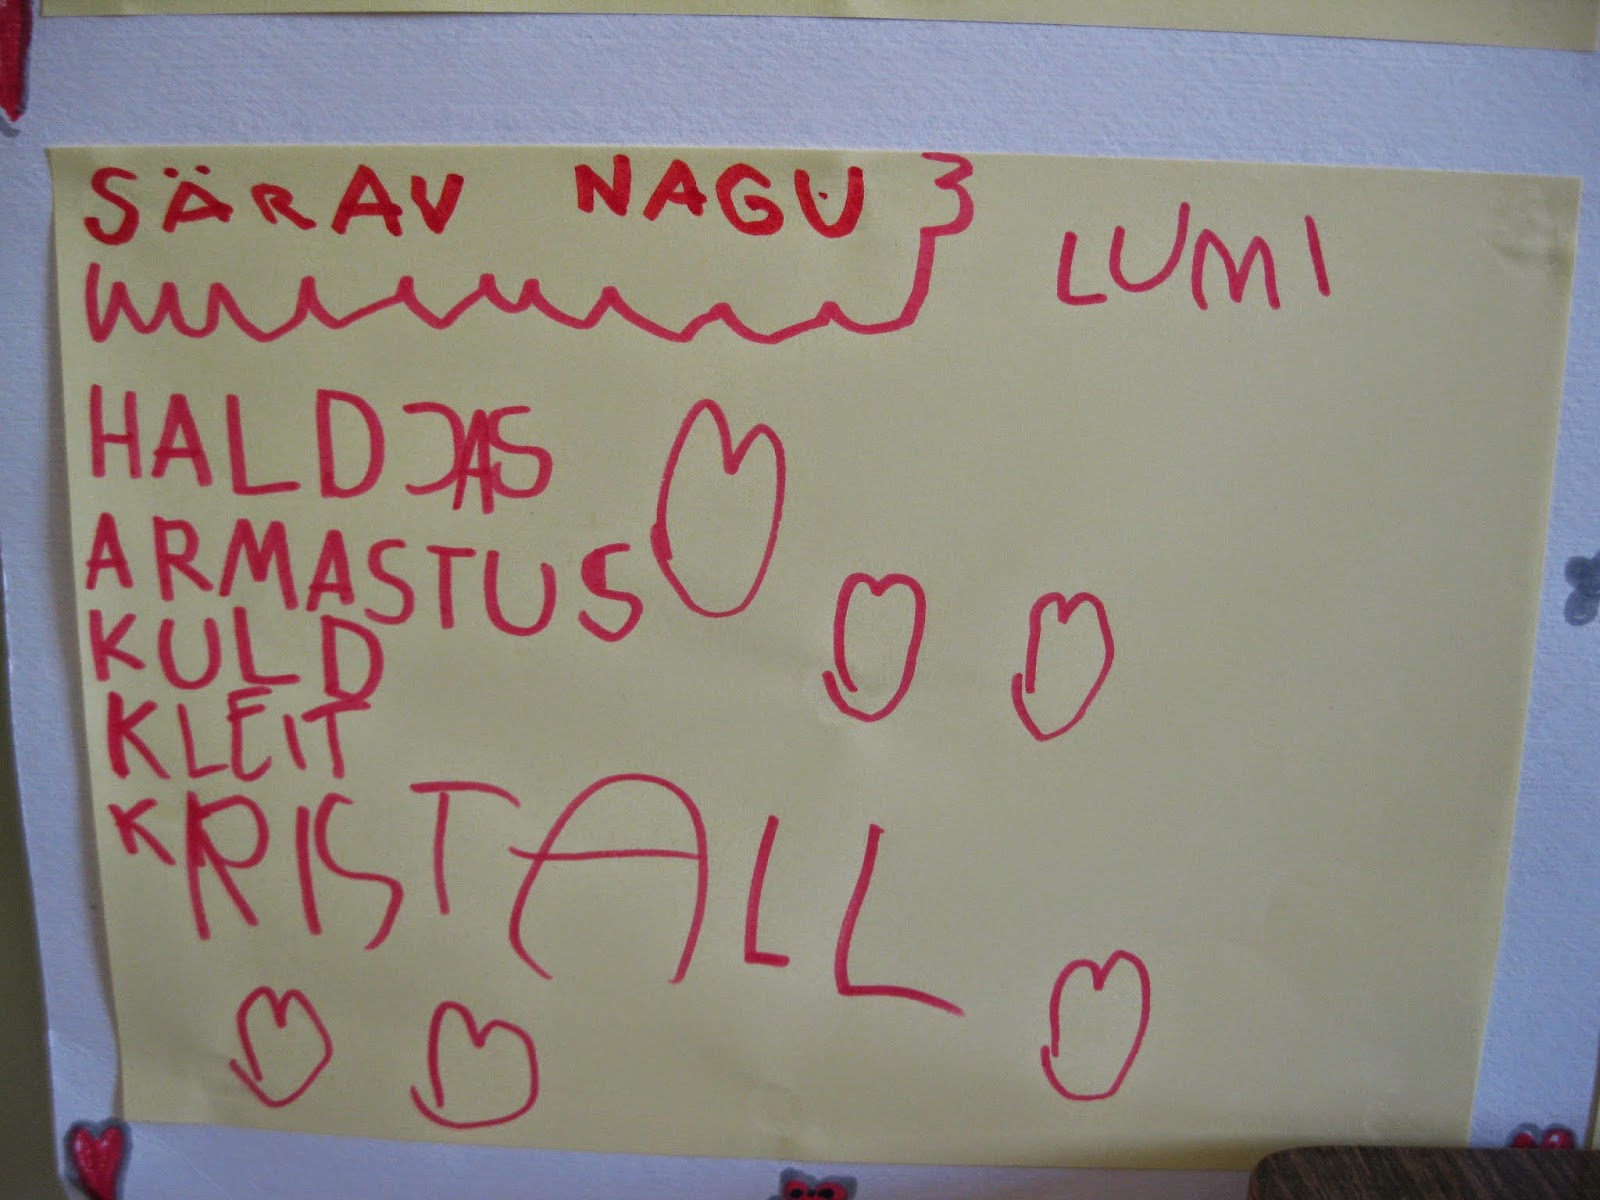 SÄRAV NAGU
LUMI
HALDJAS
ARMASTUS
KULD
KLEIT
KRISTALL